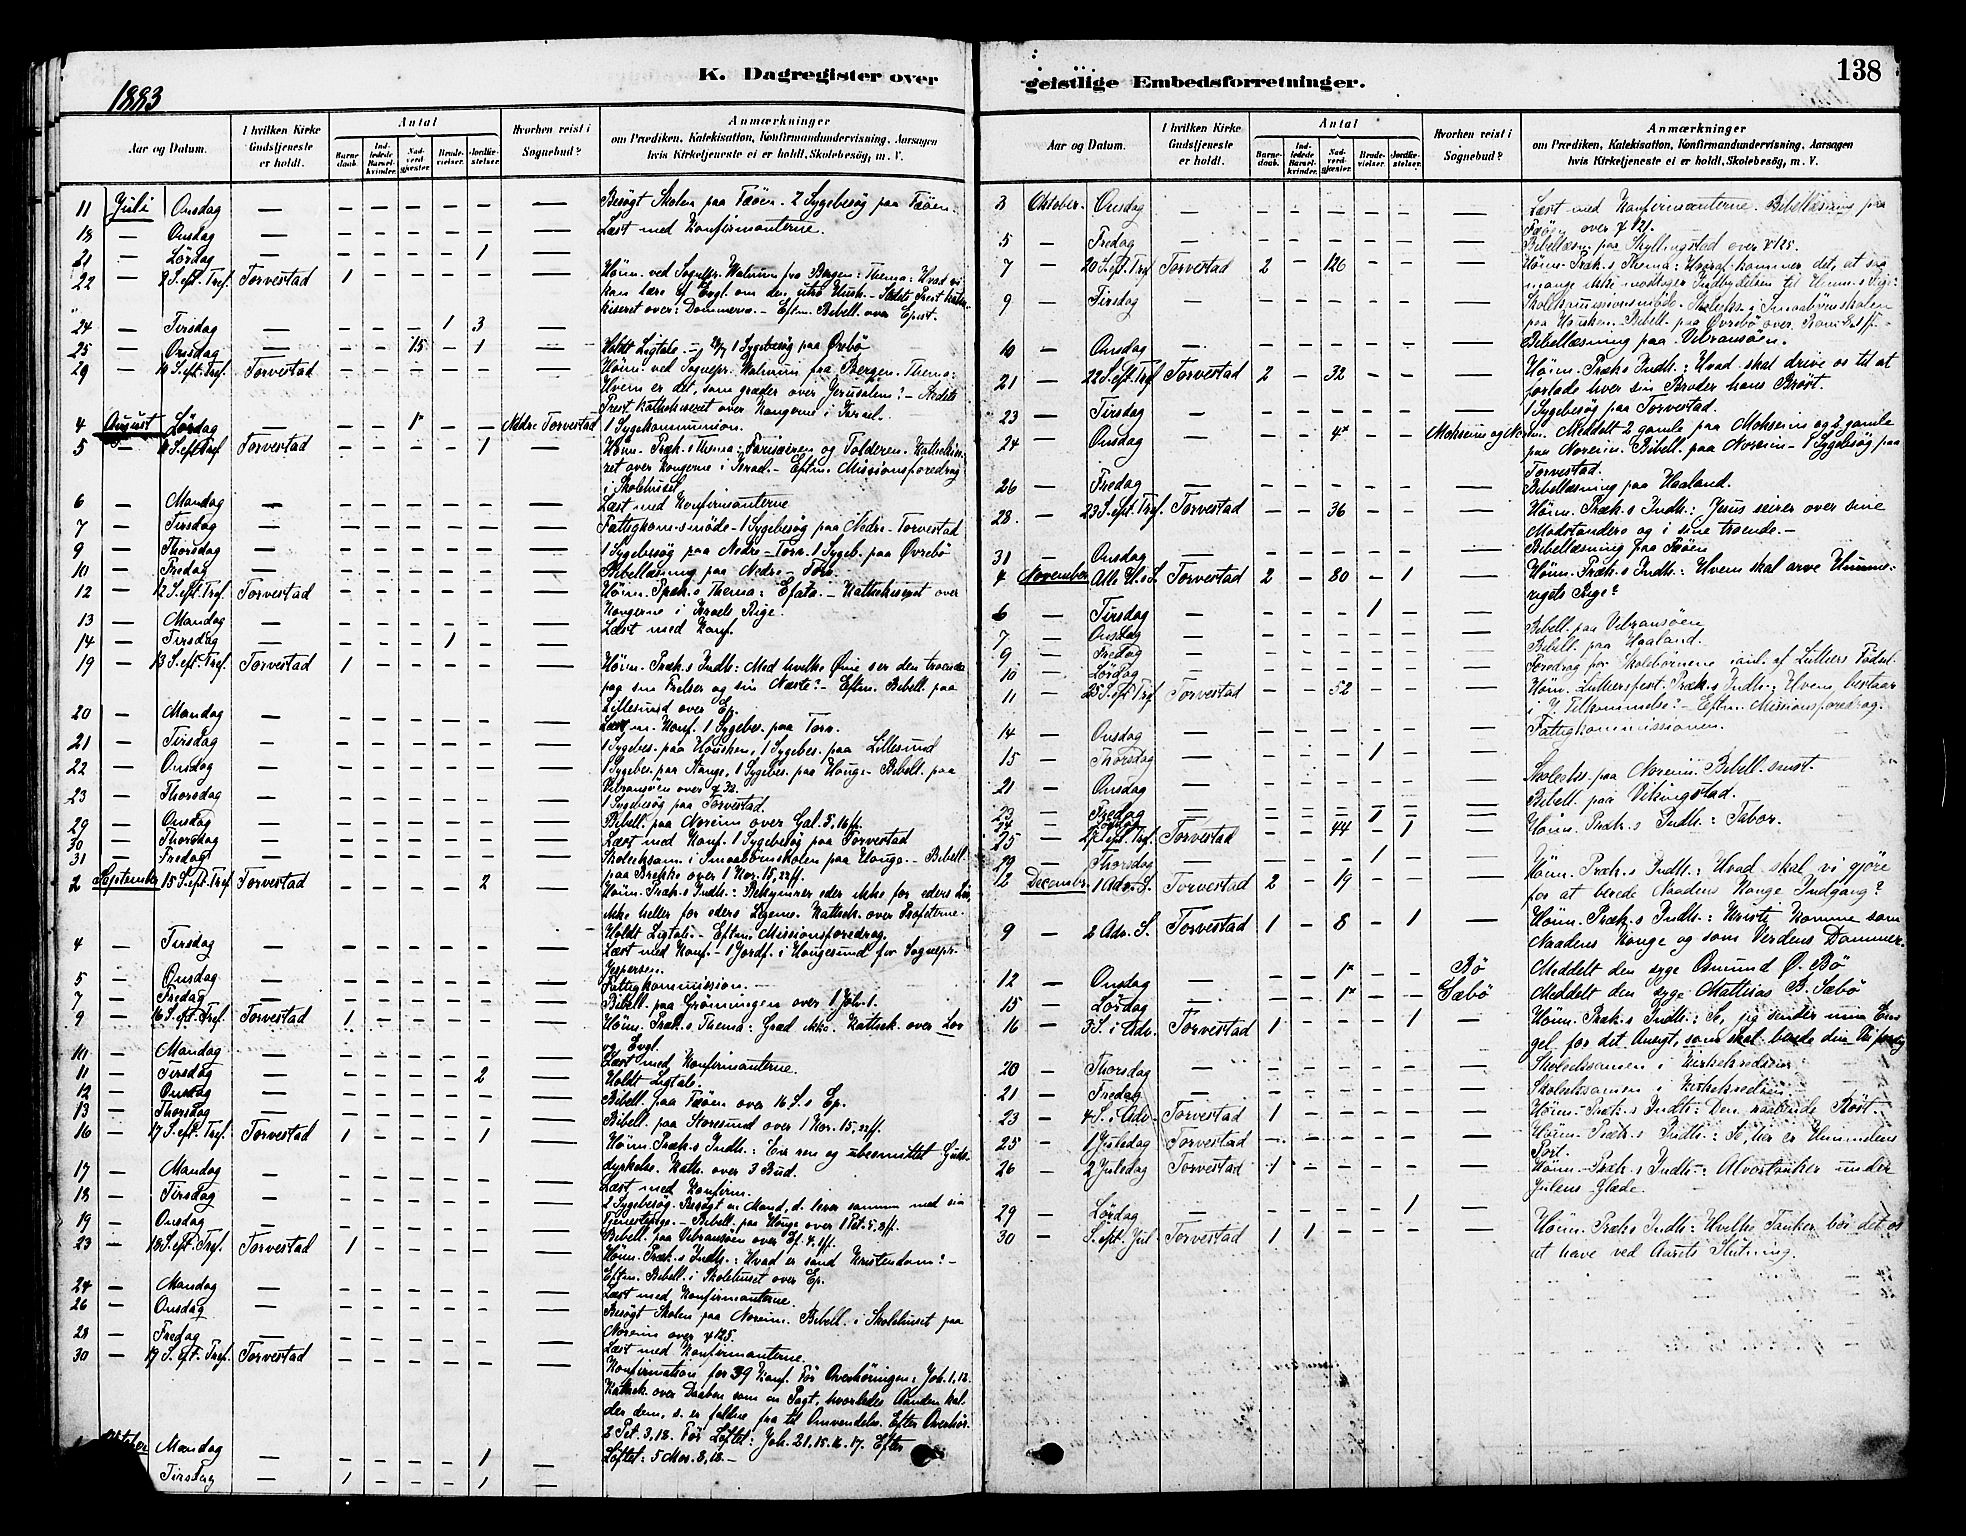 K. Dagregister over
1883
Aar og Datum.
I hvilken Kirke Gudstjeneste er holdt.
Antal
Barnedaab.
Indledede Barselkvinder.
Nadverdgjæster.
Brudevielser.
Jordfæstelser.
Hvorhen reist i Sognebud?
Anmærkninger
om Prædiken, Katekisation, Konfirmandundervisning, Aarsagen
hvis Kirketjeneste ei er holdt, Skolebesög, m. V.
11 Juli Onsdag — Besögt Skolen paa Fæöen. 2 Sygebesög paa Fæöen.
18 — Onsdag — Læst med Konfirmanterne.
21 — Lördag — 1
22 — 9 S. eft. Tref. Torvestad 1
24 — Tirsdag — 1 3
25 — Onsdag — 15 — 1
29 — 10 S. eft. Tref. Torvestad
4 August Lördag — 1* Nedre Torvestad 1 Sygekommunion.
5 — 11 S. eft. Tref. Torvestad 1
i Skolehuset
6 — Mandag — Læst med Konfirmanterne
7 — Tirsdag — Fattigkom.smöde – 1 Sygebesög paa Nedre-Torvestad
9 — Thorsdag — 1 Sygebesög paa Nedre-Torv. 1 Sygeb. paa Øvrebö
10 — Fredag — Bibellæsning paa Nedre-Torv.
12 — 12 S. eft. Tref. Torvestad Höim. Præk.s Thema: Efata. – Kattekiseret over
Kongerne i Israels Rige.
13 — Mandag — Læst med Konf.
14 — Tirsdag — 1
19 — 13 S. eft. Tref. Torvestad 1 Höim. Præk.s Indh.: Med hvilke Øine ser den troende
paa sin Frelser og sin Næste? – Eftm. Bibell. paa
Lillesund over Ep.
20 — Mandag — Læst m. Konf. 1 Sygebes. paa Torv.
21 — Tirsdag — 1 Sygebes. paa Housken, 1 Sygebes. paa Lillesund
22 — Onsdag — 1 Sygebes. paa Stange, 1 Sygebes. paa Hauge – Bibell. paa
Vibransöen over ψ 32.
23 — Thorsdag — 1 Sygebesög paa Torvestad.
29 — Onsdag — Bibell. paa Noreim over Gal. 5, 16 ff.
30 — Thorsdag — Læst med Konf. 1 Sygebesög paa Torvestad
31 — Fredag — Skoleeksam. i Smaabörnskolen paa Hauge – Bibell.
paa Brekke over 1 Kor. 15, 22 ff.
2 September 15 S. eft. Tref. Torvestad 2 Höim. Præk.s Indh.: Bekymrer eder ikke for eders Liv,
ikke heller for eders Legeme. Kattek. over Profeterne.
Holdt Ligtale – Eftm. Missionsforedrag.
4 — Tirsdag — Læst med Konf. – 1 Jordf. i Haugesund for Sognepr.
Jespersen.
5 — Onsdag — Fattigkommission. –
7 — Fredag — Bibell. paa Grönningen over 1 Joh. 1.
9 — 16 S. eft. Tref. Torvestad 1 Höim. Præk.s Thema: Græd ikke. Kattek. over Lov
og Evgl.
10 — Mandag — Læst med Konfirmanterne.
11 — Tirsdag — 2 Holdt Ligtale.
12 — Onsdag — Bibell. paa Fæöen over 16 S.s Ep.
13 — Thorsdag — Bibell. paa Storesund over 1 Kor. 15, 22 ff.
16 — 17 S. eft. Tref. Torvestad 1 1 Höim. Præk.s Indh.: En ren og ubesmittet Guds-
dyrkelse. Kattk. over 3 Bud.
17 — Mandag — Læst med Konfirm.
18 — Tirsdag — 2 Sygebesög. Besögt en Mand, d. lever sammen med sin
Tjenestepige. – Bibell. paa Hauge over 1 Pet. 5, 8 ff.
19 — Onsdag — Bibell. paa Vibransöen over Ef. 4, 1 ff.
23 — 18 S. eft. Tref. Torvestad 1 Höim. Præk.s Indh.: Hvad er sand Kristendom? –
Eftm. Bibell. i Skolehuset over Ep.
24 — Mandag — Læst med Konfirmanterne.
26 — Onsdag — Besögt Skolen paa Noreim. Bibell. i Skolehuset paa
Noreim over ψ 125.
28 — Fredag — Læst med Konfirmanterne.
30 — 19 S. eft. Tref. Torvestad Konfirmation for 39 Konf. För Overhöringen: Joh. 1, 12.
Kattek. over Daaben som en Pagt, hvorledes Aanden kal-
der dem, s. er faldne fra til Omvendelse. Efter Overhör.
2 Pet. 3, 18. För Löftet: Joh. 21, 15. 16. 17. Efter
Löftet: 5 Mos. 8, 18. –
Mandag — 1
Tirsdag — 1 1
geistlige Embedsforretninger.
138
Aar og Datum.
I hvilken Kirke Gudstjeneste er holdt.
Antal
Barnedaab.
Indledede Barselkvinder.
Nadverdgjæster.
Brudevielser.
Jordfæstelser.
Hvorhen reist i Sognebud?
Anmærkninger
om Prædiken, Katekisation, Konfirmandundervisning, Aarsagen
hvis Kirketjeneste ei er holdt, Skolebesög, m. V.
3 Oktober. Onsdag — Læst med Konfirmanterne. Bibellæsning paa
Fæöen over ψ 121.
5 — Fredag — Bibellæsn. paa Skyllingstad over ψ 125.
7 — 20 S. eft. Tref Torvestad 2 — 126 Höim. Præk.s Thema: Hvoraf kommer det, at saa
mange ikke modtager Indbydelsen til Himm.s Rige?
9 — Tirsdag — Skolekommissionsmöde. Skoleeks. i Smaabörnsskolen
paa Housken. Bibell. paa Øvrebö over
10 — Onsdag — Bibellæsning paa Vibransöen.
21 — 22 S. eft. Tref Torvestad 2 — 32 Höim. Præk.s Indh.: Hvad skal drive os til at
forlade hver sin Broder hans Bröst.
23 — Tirsdag — 1 Sygebesög paa Torvestad.
24 — Onsdag — 4* Mohseim og Noreim. Meddelt 2 gamle paa Mohseim og 2 gamle
paa Noreim. Bibell. paa Noreim – 1 Sygebesög paa
Torvestad.
26 — Fredag — Bibellæsning paa Haaland.
28. — 23 S. eft. Tref. Torvestad — 36 Höim. Præk.s Indh.: Jesus seirer over sine
Modstandere og i sine troende. –
31 — Onsdag — Bibellæsning paa Fæöen
4 November Alle H.s S. Torvestad 2 — 80 — 1 Höim. Præk.s Indh.: Hvem skal arve Himme-
rigets Rige?
6 — Tirsdag — 1
7 — Onsdag — Bibell. paa Vibransöen
9 — Fredag — Bibell. paa Haaland.
10 — Lördag — Foredrag for Skolebörnene anl. af Luthers Födsel
11 — 25 S. eft Tref. Torvestad — 52 Höim. Luthersfest. Præk.s Indh.: Hvem bestaar
i J. Tilkommelse? – Eftm. Missionsforedrag.
14 — Onsdag — Fattigkommissionen.
15 — Thorsdag — 1
21 — Onsdag — Skolebes. paa Noreim. Bibell. smst.
23 — Fredag — 1 Bibell. paa Vikingstad.
24
25 — 27 S. eft. Tref. Torvestad — 44 — 1 Höim. Præk.s Indh.: Tabor.
29 — Thorsdag — 1
2 December 1 Adv. S. Torvestad 2 — 19 Höim. Præk.s Indh.: Hvad skal vi gjöre
for at berede Naadens Konge Indgang?
9 — 2 Adv. S. Torvestad 1 — 8 — 1 Höim. Præk.s Indh.: Kristi Komme som
Naadens Konge og som Verdens Dommer.
12 — Onsdag — 1* Bö Meddelt den syge Osmund Ø. Bö
15 — Lördag — 1* Sæbö Meddelt den syge Mathias B. Sæbö
16 — 3 S. i Adv. Torvestad 1 1 Höim. Præk.s Indh.: Se, jeg sender min En-
gel for dit Ansigt, som skal berede din Vei for dig
20 — Thorsdag — Skoleeksamen i Kirkekredsen
21 — Fredag — Skoleeksamen i Kirkekredsen.
23 — 4 S. i Adv. Torvestad 1 Höim. Præk.s Indh.: Den raabende Röst.
25 — 1 Juledag Torvestad Höim. Præk.s Indh.: Se, her er Himmelens
Port.
26 — 2 Juledag Torvestad 1 Höim. Præk.s Indh.: Alvorstanker under
Julens Glæde.
29 — Lördag — 1
30 — S. eft. Jul Torvestad 1 1 Höim. Præk.s Indh.: Hvilke Tanker bör det os
at have ved Aarets Slutning.